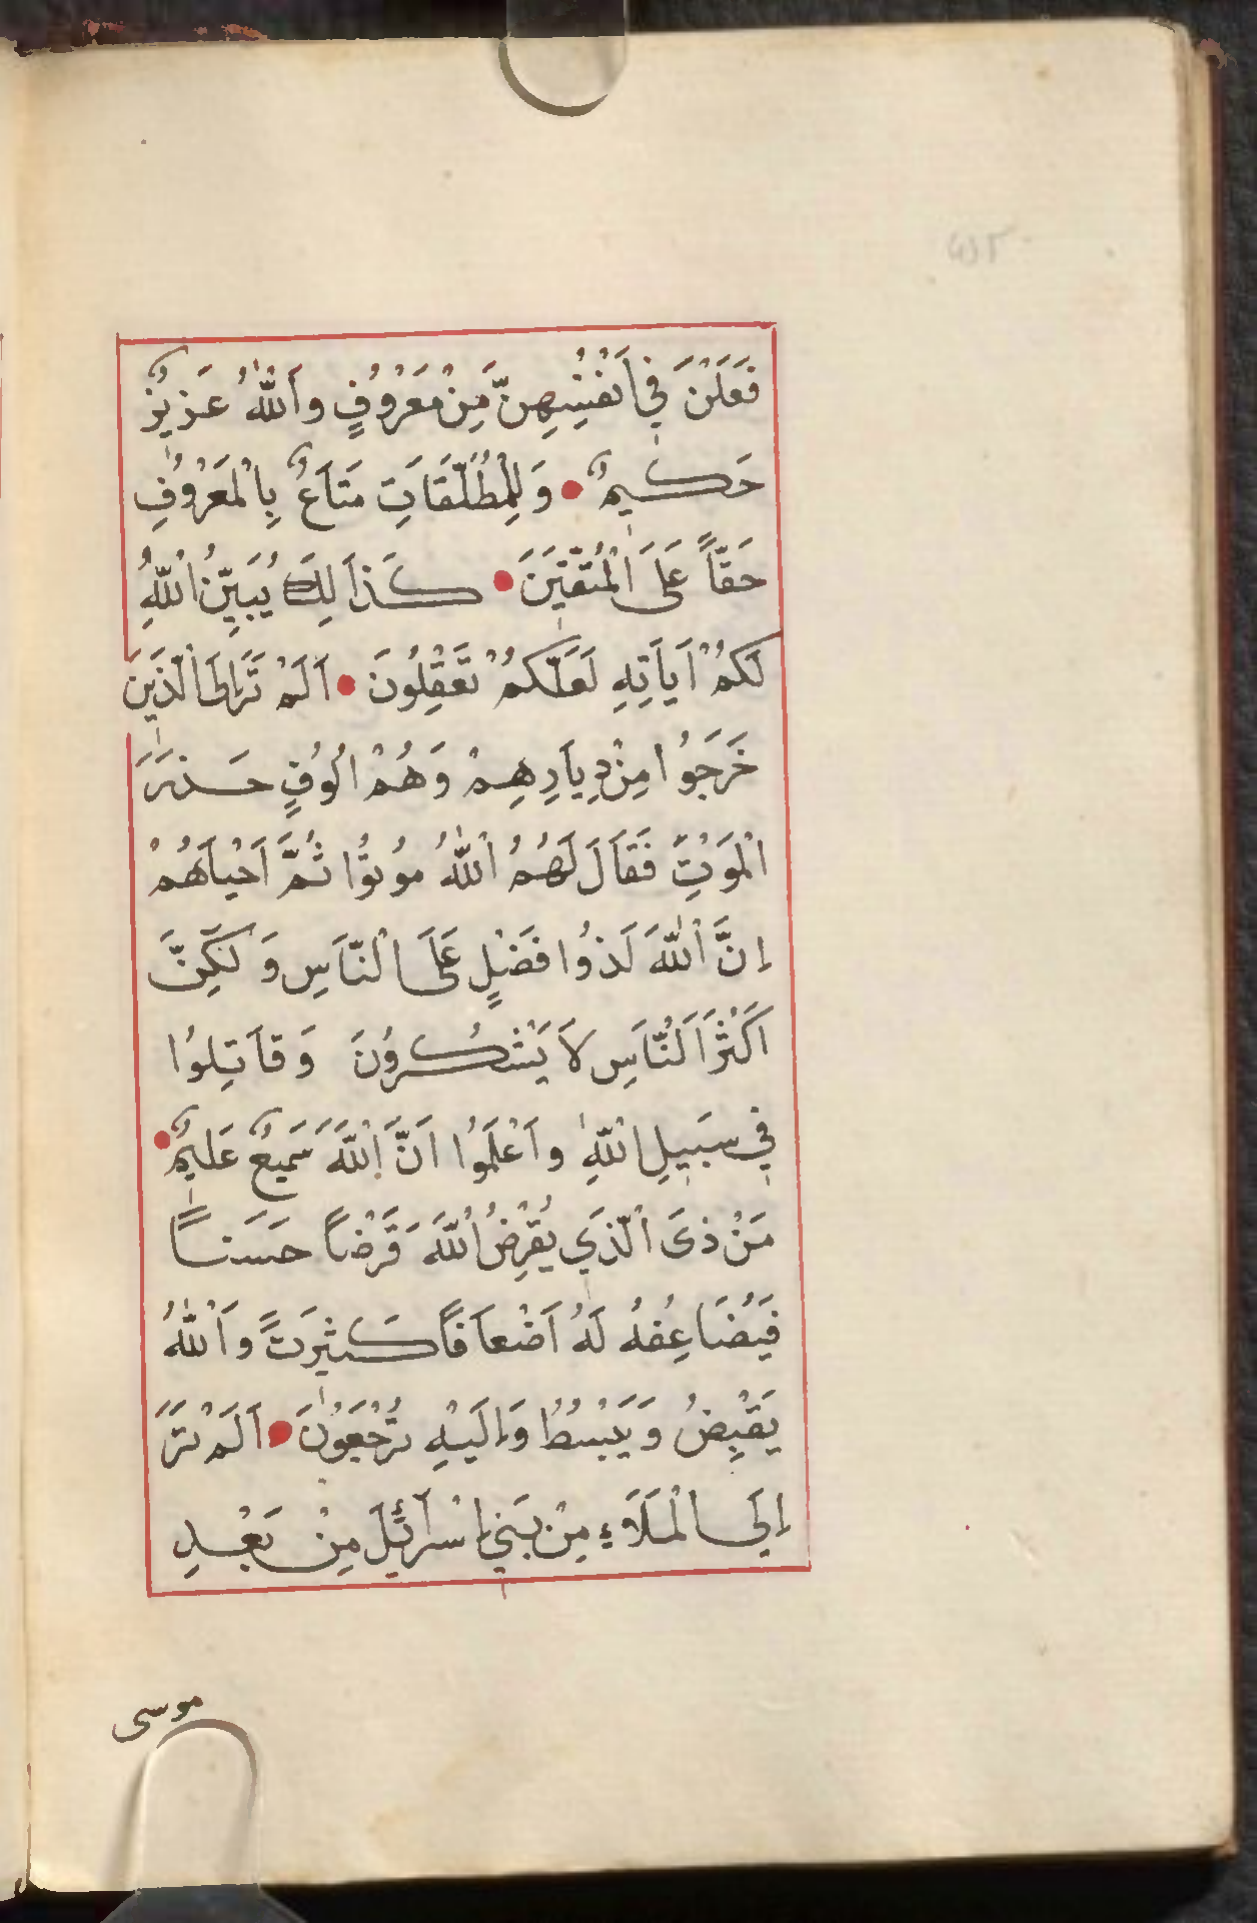 فَعَلْنَ فِي اَنْفُسِهِنَّ مِنْ مَعْرُوُفٍ وَاَللّٰهُ عَزِيزٌ
حَكِيمٌ وَلِلْمُطَلَّقَاتِ مَتَاعٌ بِالْمَعْرُوُفِ
حَقّاً عَلَى الْمُتَّقِينَ كَذَالِكَ يُبَيِّنُ اللّٰهُ
لَكُمْ اَيَاَتِهِ لَعَلَّكُمْ تَعْقِلُونَ اَلَمْ تَرَ اِلَى الَّذِينَ
خَرَجَوُا مِنْ دِيَارِهِمْ وَهُمْ الُوُفٍ حَذَرَ
الْمَوْتِ فَقَالَ لَهُمُ اللّٰهُ مُوُتُوُا ثُمَّ اَحْيَاهُمْ
اِنَّ اللّٰهَ لَذُوُا فَضْلٍ عَلَى النَّاسِ وَلَكِنَّ
اَكْثَرَ النَّاسِ لاَ يَشْكُرُوُنَ وَقَاتِلُوُا
فِي سَبِيلِ اللّٰهِ وَاَعْلَمُوُا اَنَّ اللّٰهَ سَمِيعٌ عَلِيمٌ
مَنْ ذىَ الَّذِي يُقْرِضُ اللّٰهَ قَرْضاً حَسَناً
فَيُضَاعِفهُ لَهُ اَضْعَافاً كَثِيرَتً وَاَللّٰهُ
يَقْبِضُ وَيَبْسُطُ وَاِلَيْهِ تُرْجَعُوُنَ اَلَمْ تَرَ
اِلَى الْمَلَاَءِ مِنْ بَنِي اِسْرَآئِلَ مِنْ بَعْدِ
موسى